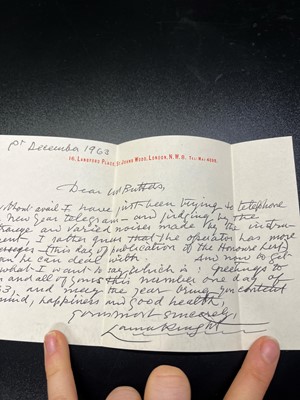 1st December 1962
16, Langford Place, St Johns Wood, London, N.W.8.
Dear Mr Butters,
without avail I have just been trying to telephone
New Year telegram — and judging by the
and varied noises made by the
I rather guess that the operator has more
(this day of publication of the Honours List)
than he can deal with. And now to get
what I want to say, which is: Greetings to
and all of yours this number one day of
63, and may the year bring you content
mind, happiness and good health,
yours most sincerely,
Laura Knight